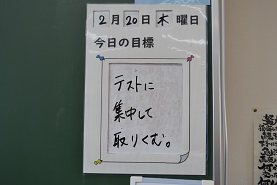 2月20日木曜日
今日の目標
テストに
集中して
取りくむ。